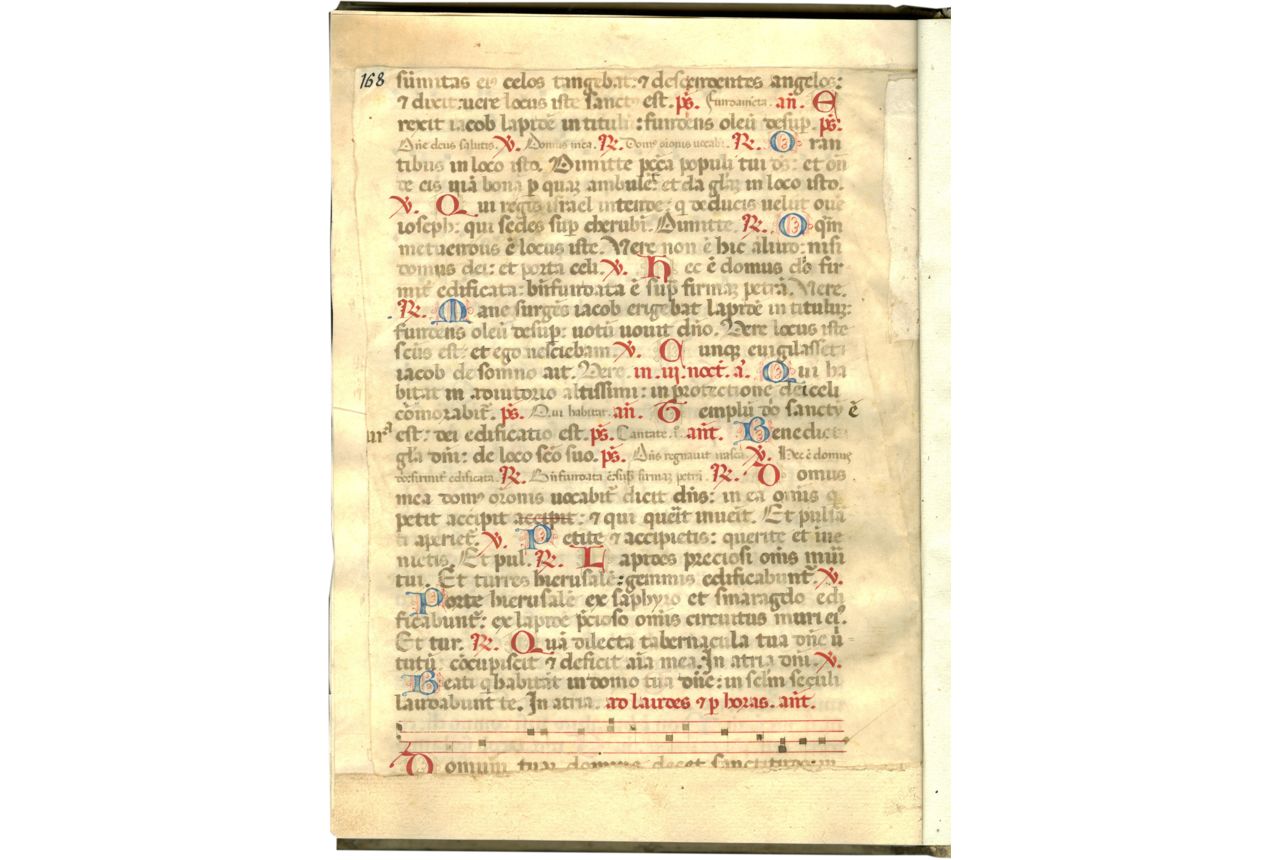 168
sūmitas eiˀ celos tangebat: ⁊ descendentes angelos:
⁊ dixit: uere locus iste sanctˀ est. pˢ. Fundamēta. añ. E
rexit iacob lapidē in titulū: fundens oleū desup. pˢ.
Dñe deus salutis. ℣. Domus mea. ℟. Domˀ orōnis uocabit̄. ℟. O ran
tibus in loco isto. Dimitte pctā populi tui ds: et ostēn
de eis uiā bonā p quaȝ ambulēt et da glāȝ in loco isto.
℣. Q ui regis israel intende: q deducis uelut ouē
ioseph: qui sedes sup cherubī. Dimitte. ℟. O q̄m
metuendus ē locus iste. Vere non ē hic aliud: nisi
domus dei: et porta celi. ℣. H ec ē domus dñi fir
mit̄ edificata: bñ fundata ē sup firmaȝ petrā. Vere.
℟. M ane surgēs iacob erigebat lapidē in titulum:
fundens oleū desup: uotū uouit dño. Vere locus iste
scūs est: et ego nesciebam. ℣. C unqȝ euigilasset
iacob de somno ait. Vere. in .iij. noct. a̅. Q ui ha
bitat in adiutorio altissimi: in protectione dei celi
cōmorabit̄. pˢ. Qui habitat. añ. T emplū dñi sanctū ē
est: dei edificatio est. pˢ. Cantate .i. añt. B enedicta
glā dñi: de loco scō suo. pˢ. Dñs regnauit irasca. ℣. Hec ē domus
dñi firmit̄ edificata. ℟. Bñ fundata ē: sup firmaȝ petrā. ℟. D omus
mea domˀ orōnis uocabit̄ dicit dñs: in ea omīs q
petit accipit accipit: ⁊ qui querit inuenit. Et pulsā
ti aperiet̄. ℣. P etite ⁊ accipietis: querite et inue
nietis. Et pul. ℟. L apides preciosi om̄s muri
tui. Et turres hierusalē: gemmis edificabunt̄. ℣.
P orte hierusalē ex saphyro et smaragdo edi
ficabunt̄: ex lapide p̄cioso omīs circuitus muri eiˀ.
Et tur. ℟. Q uā dilecta tabernacula tua dñe uir
tutū: cōcupiscit ⁊ deficit aīa mea. In atria dñi. ℣.
B eati q habitāt in domo tua dñe: in sclm seculi
laudabunt te. In atria. ad laudes ⁊ p horas. añt.
D omum tuaȝ domine decet sanctitudo in